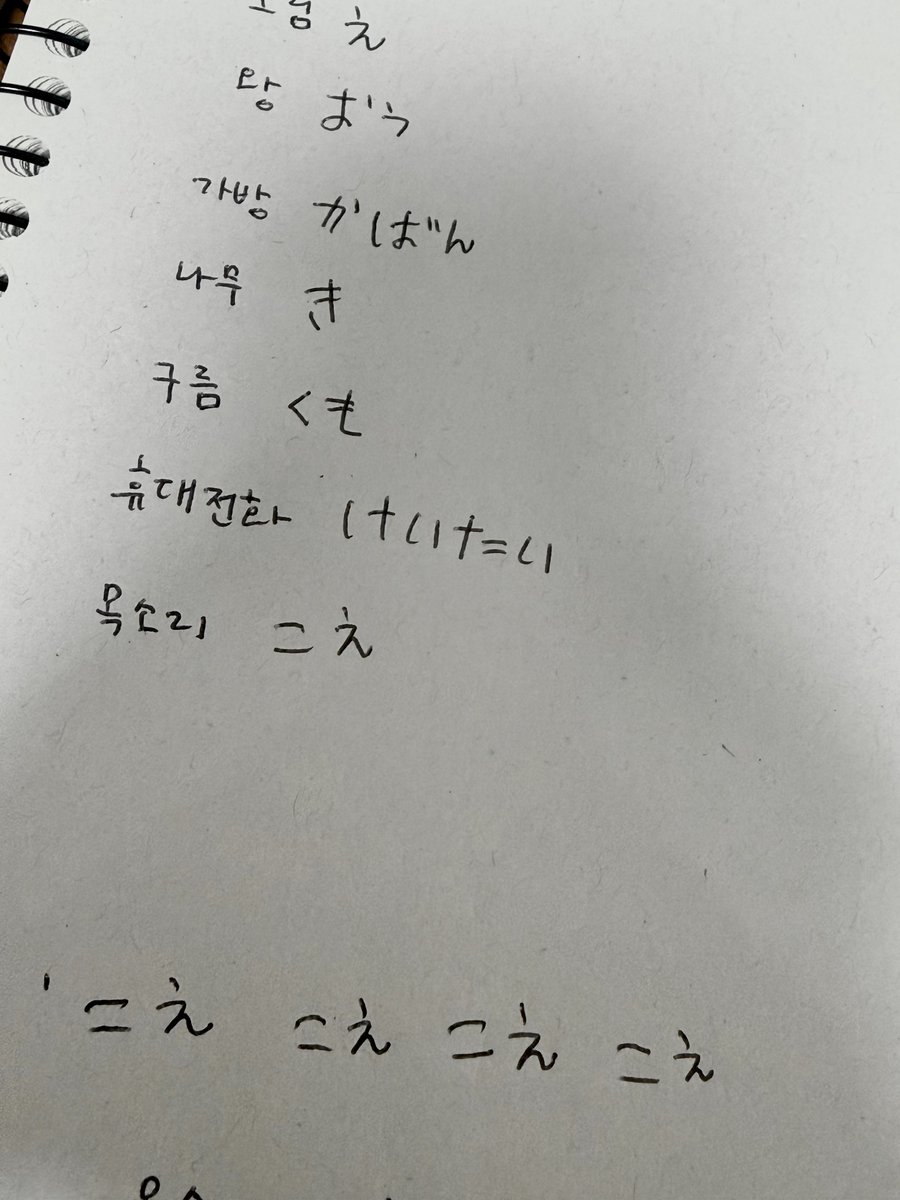 え
왕 おう
가방 かばん
나무 き
구름 くも
휴대전화 けいたい
목소리 こえ
こえ こえ こえ こえ